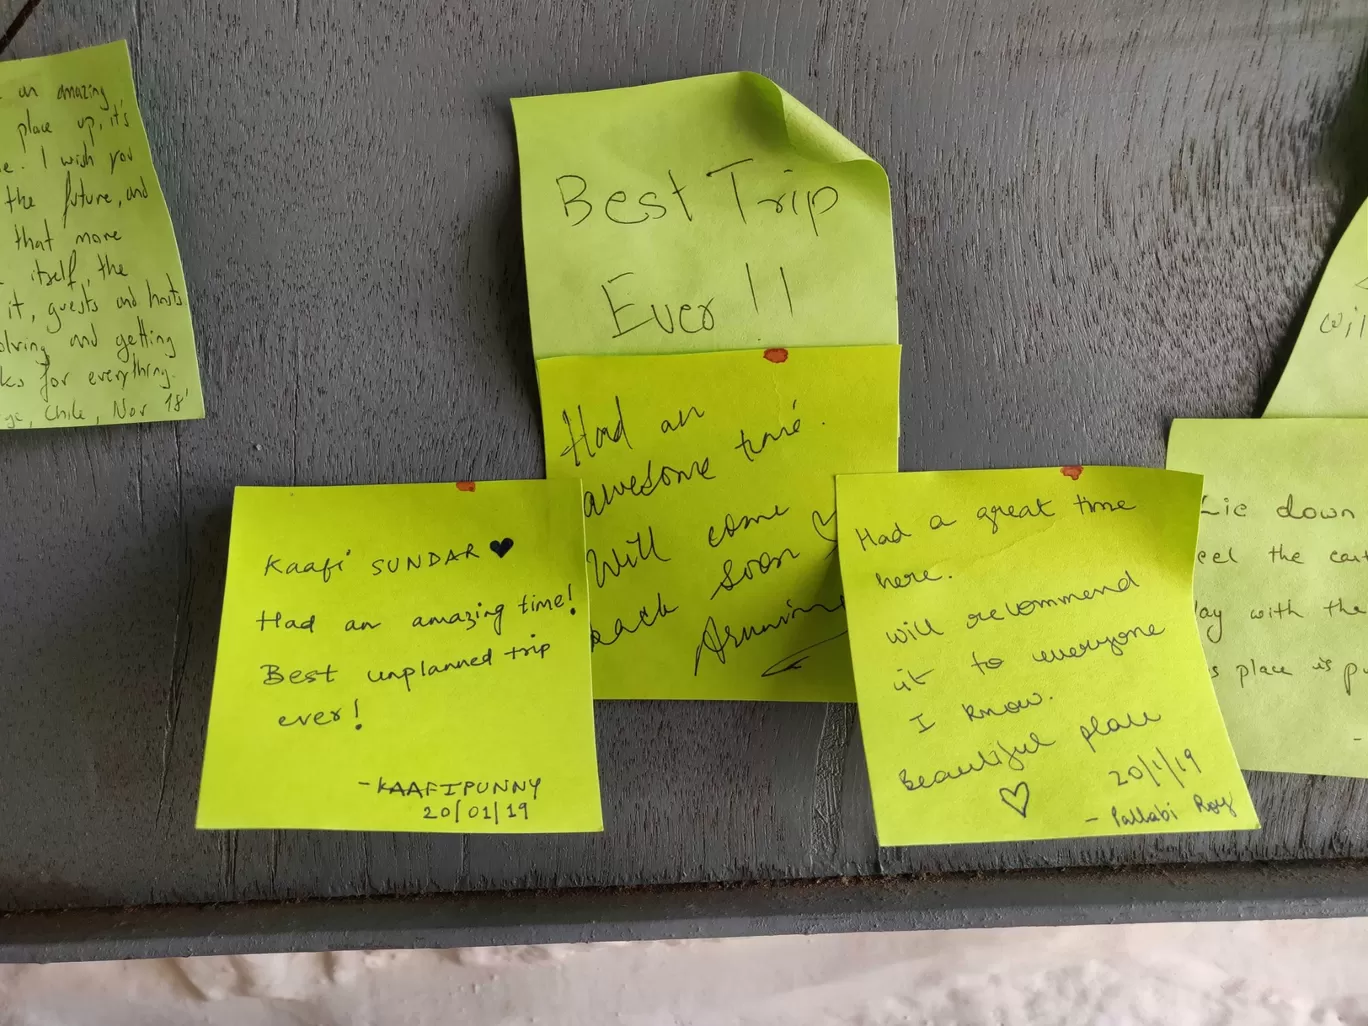 an amazing
place up, it's
I wish you
the future, and
that more
itself, the
it, guests and hosts
and getting
for everything.
Chile, Nov 18'
Best Trip
Ever !!
Had an
awesome time.
Will come
back soon
Kaafi SUNDAR ♥
Had an amazing time!
Best unplanned trip
ever!
-KAAFIPUNNY
20/01/19
Had a great time
here.
will recommend
it to everyone
I know.
Beautiful place
♡ 20/1/19
- Pallabi Roy
Lie down
the
with the
place is